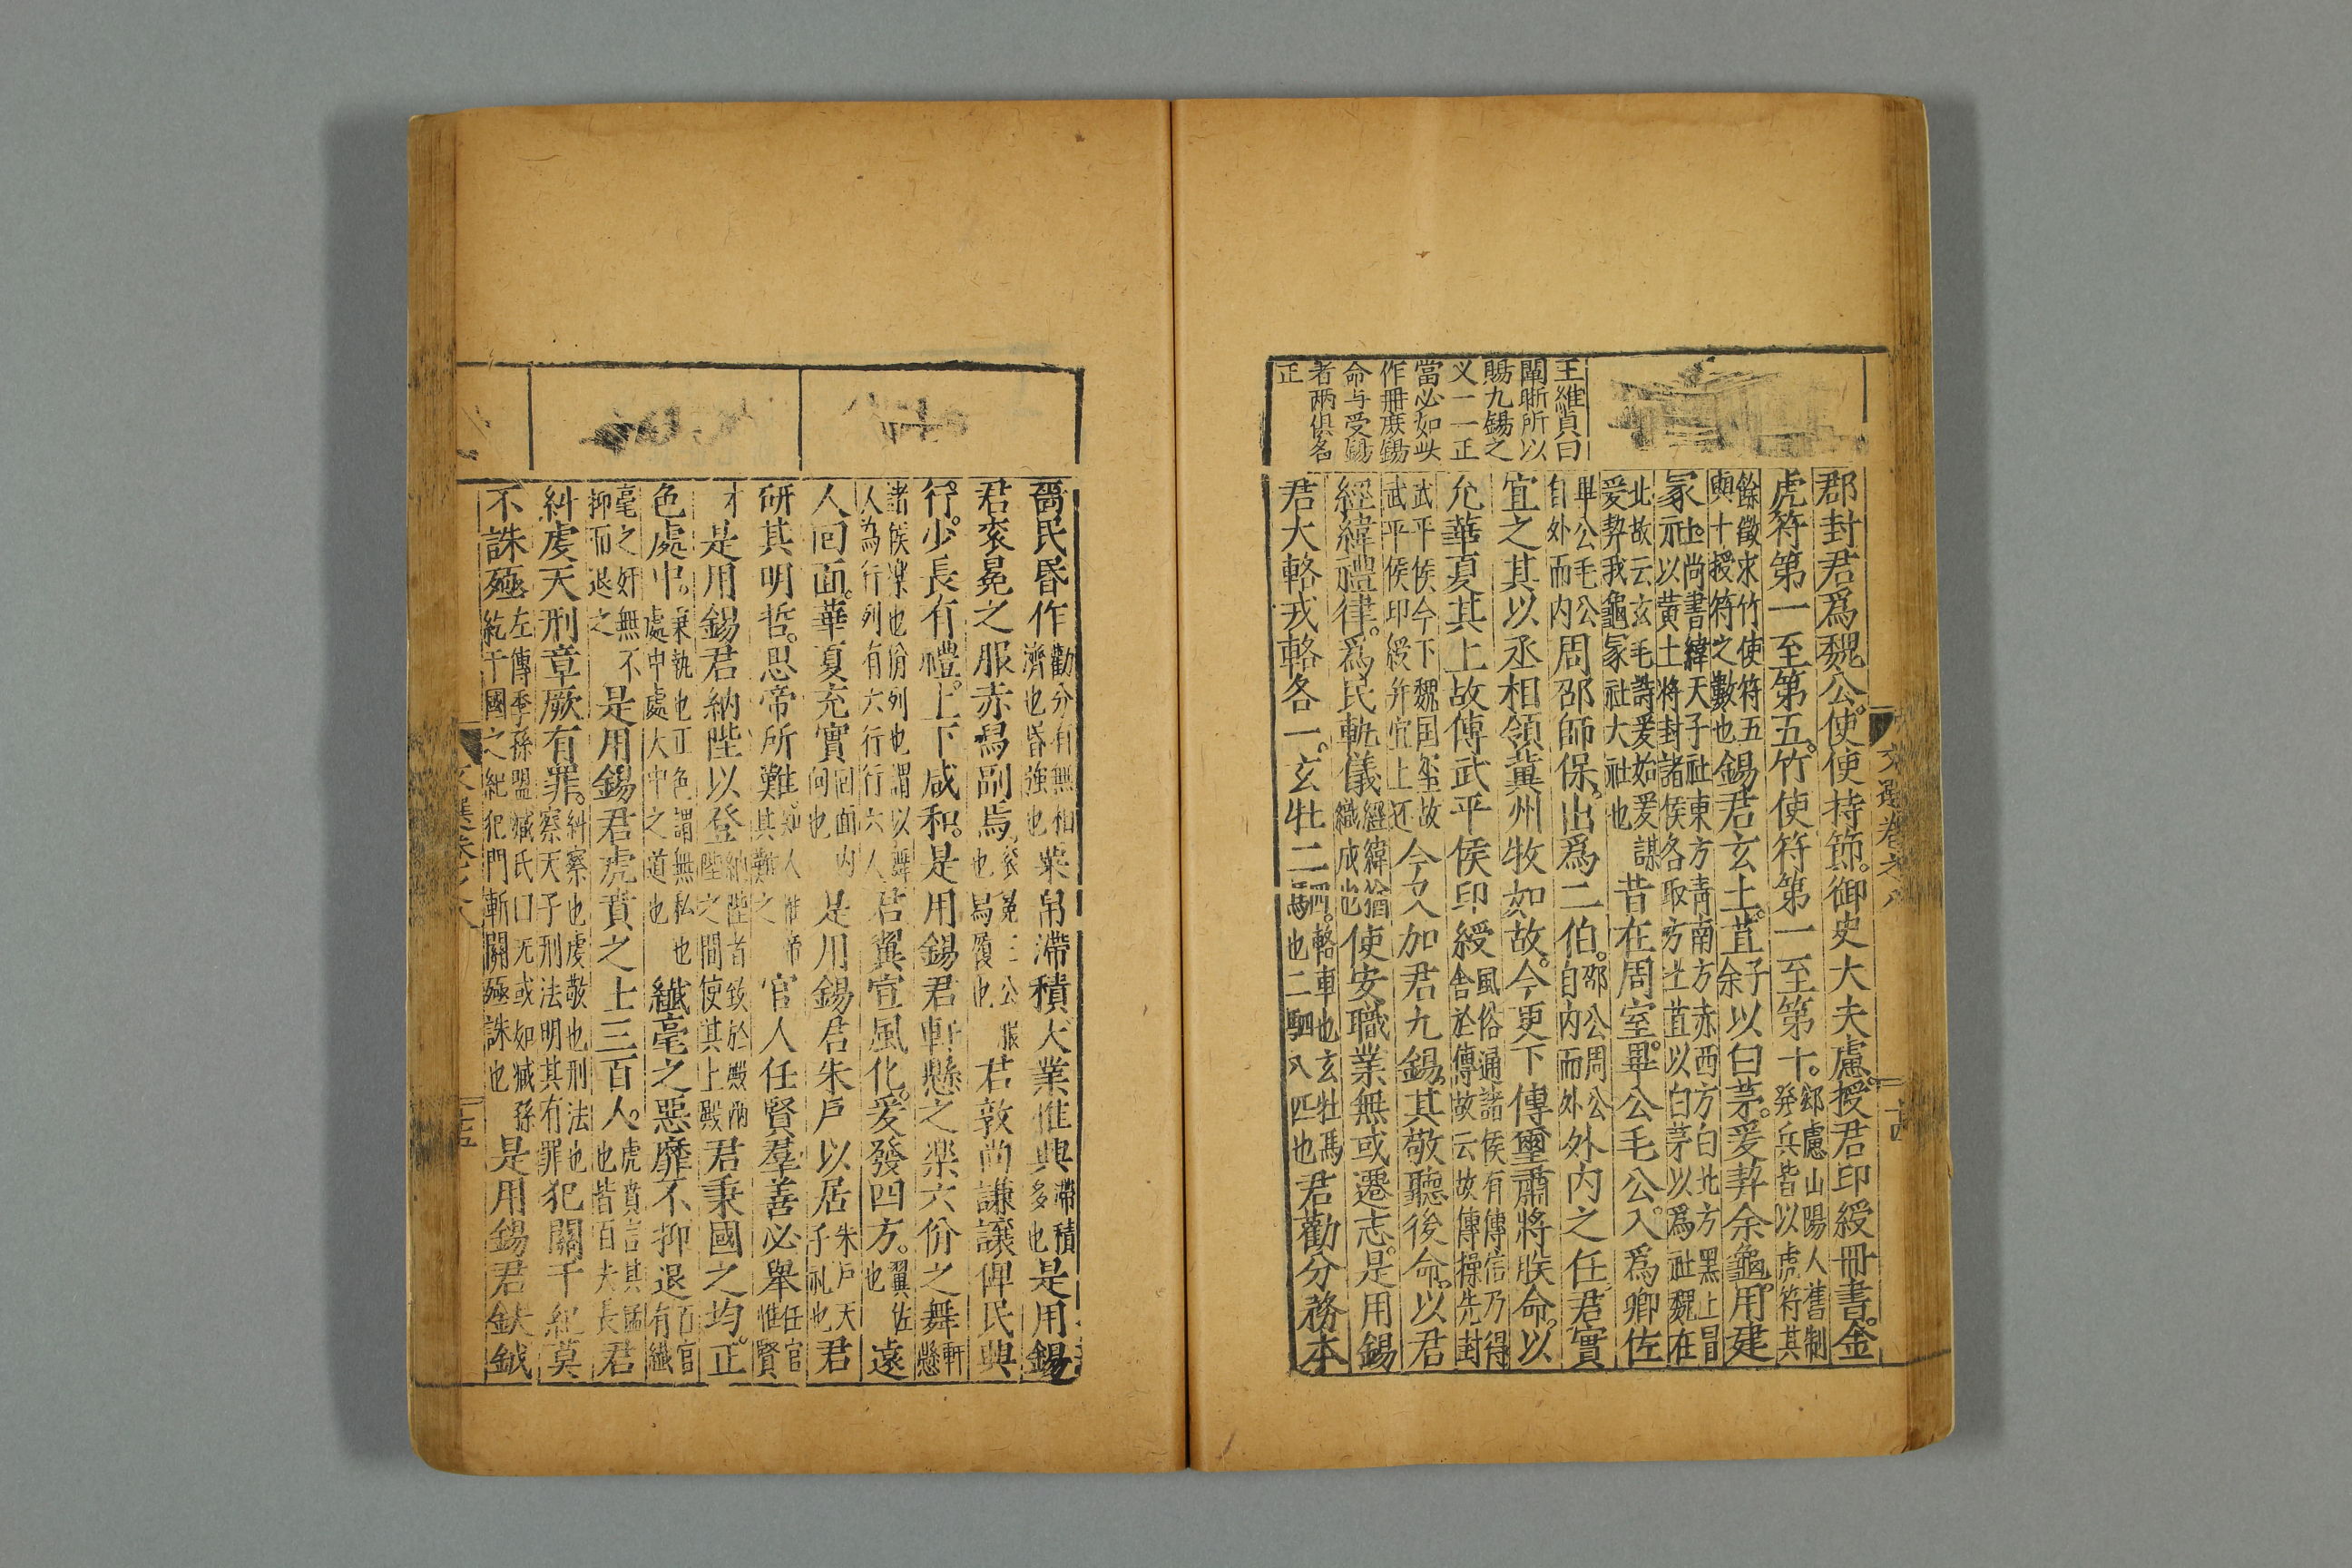 王維貞曰
闡晰所以
賜九錫之
义一一正
當必如此
作冊庶錫
命与受錫
者兩俱名
正
郡封君爲魏公使使持節御史大夫慮授君印綬冊書金
虎符第一至第五竹使符第一至第十郄慮山陽人舊制發兵皆以虎符其
餘徵求竹使符五與十授符之數也錫君玄土苴子余以白茅爰契余龜用建
冢社尚書緯天子社東方青南方赤西方白北方黑上冒示以黄土將封諸侯各取方土苴以白茅以爲社魏在
北故云玄毛詩爰始爰謀爰契我龜冢社大社也昔在周室畢公毛公入爲卿佐
畢公毛公自外而内周邵師保出爲二伯邵公周公自内而外外内之任君實
宜之其以丞相領冀州牧如故今更下傳璽肅將朕命以
允華夏其上故傳武平侯印綬風俗通諸侯有傳信乃得舍於傳故云故傳操先封
武平侯今下魏国璽故武平侯印綬并宜上还今又加君九錫其敬聽後命以君
經緯禮律爲民軌儀經緯猶織成也使安職業無或遷志是用錫
君大輅戎輅各一玄牡二駟輅車也玄牡馬也二駟八匹也君勸分務本
文選卷之八
十四
嗇民昏作勸分有無相濟也昏強也粟帛滯積大業惟典滯積多也是用錫
君衮冕之服赤舄副焉衮冕三公服也舄履也君敦尚謙讓俾民興
行少長有禮上下咸和是用錫君軒懸之樂六佾之舞軒懸
諸侯樂也佾列也謂以舞人為行列有六行行六人君翼宣風化爰發四方翼佐也遠
人回面華夏充實回面内向也是用錫君朱戸以居朱戸天子礼也君
研其明哲思帝所難知人惟帝其難之官人任賢羣善必舉任官惟賢
才是用錫君納陛以登納陛者致於殿兩陛之間使其上殿君秉國之均正
色處中秉執也正色謂無私也處中處大中之道也纎毫之惡靡不抑退百官有纎
毫之奸無不抑而退之是用錫君虎賁之士三百人虎賁言其猛也皆百夫長君
糾虔天刑章厥有罪糾察也虔敬也刑法也察天子刑法明其有罪犯關干紀莫
不誅殛左傳季孫盟臧氏曰无或如臧孫紇干國之紀犯門斬關殛誅也是用錫君鈇鉞
十五